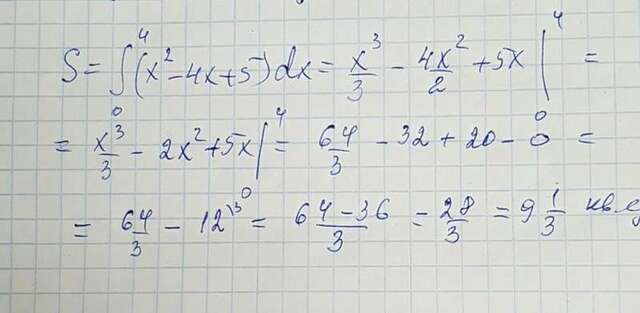 S = ∫₀⁴ (x² - 4x + 5) dx = x³/3 - 4x²/2 + 5x |₀⁴ =
= x³/3 - 2x² + 5x |₀⁴ = 64/3 - 32 + 20 - 0 =
= 64/3 - 12\3 = 64-36/3 = 28/3 = 9 1/3 кв.е